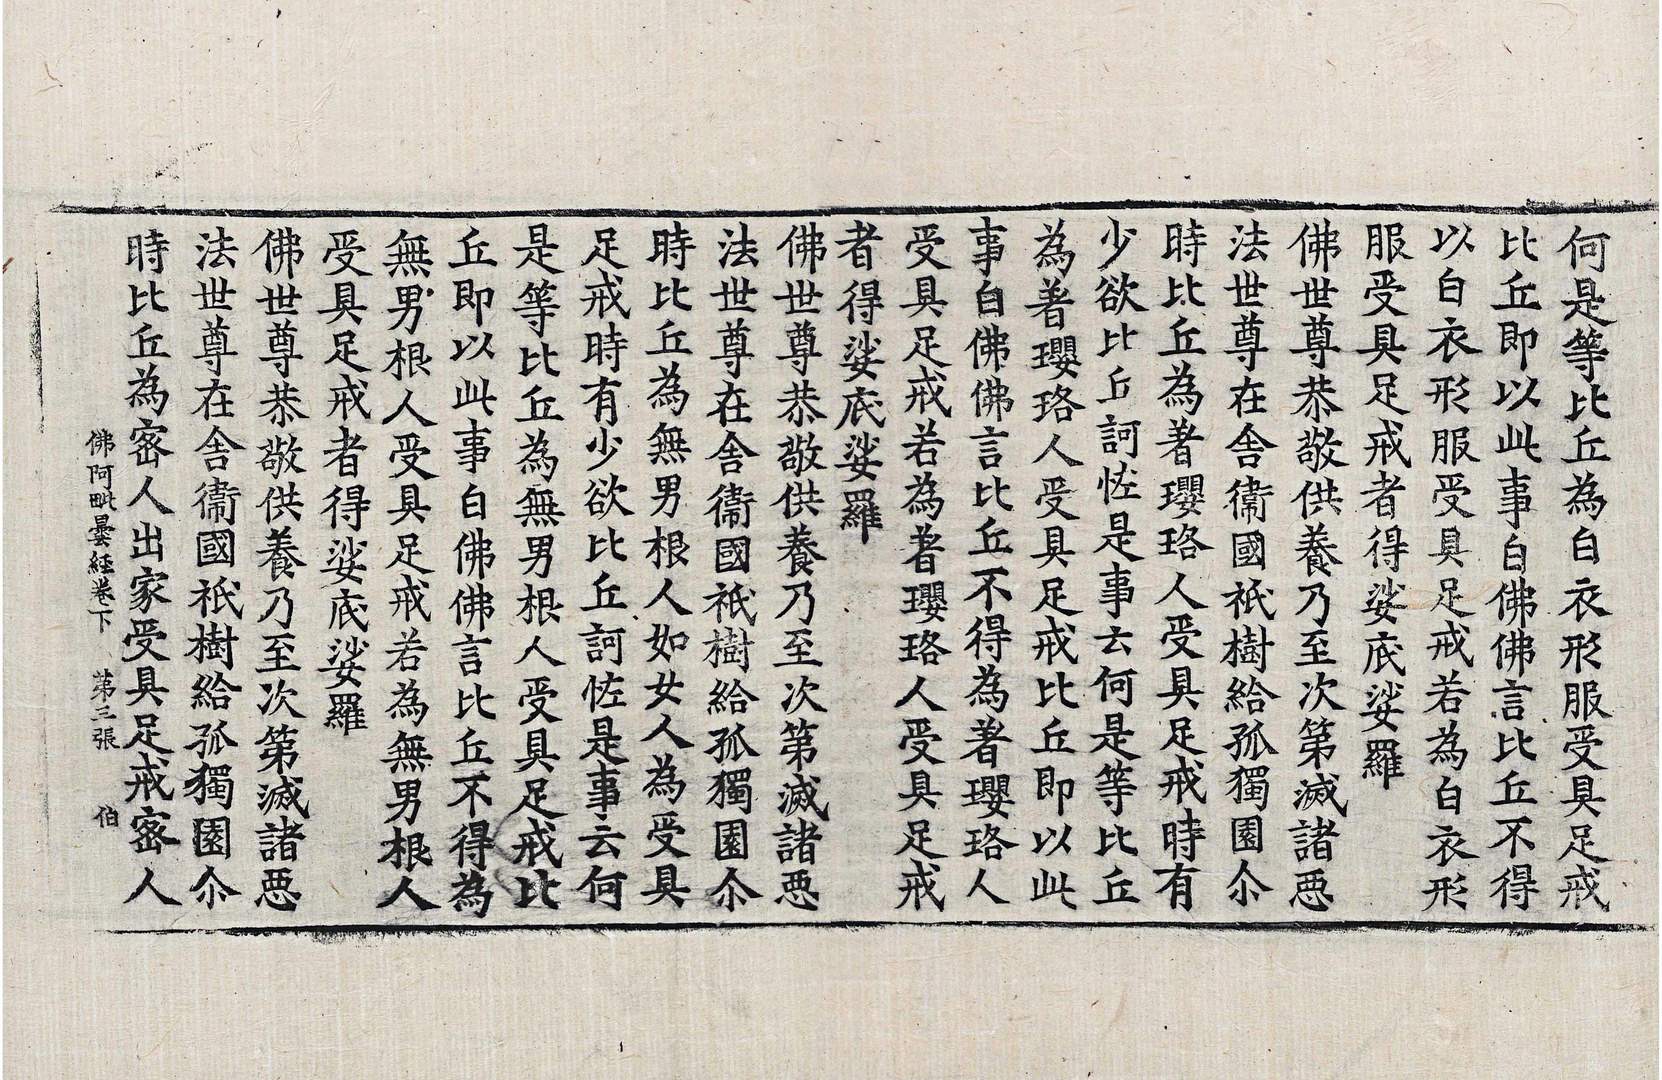 何是等比丘為白衣形服受具足戒
比丘即以此事白佛佛言比丘不得
以白衣形服受具足戒若為白衣形
服受具足戒者得娑底娑羅
佛世尊恭敬供養乃至次第滅諸惡
法世尊在舍衛國祇樹給孤獨園尒
時比丘為著瓔珞人受具足戒時有
少欲比丘訶恠是事云何是等比丘
為著瓔珞人受具足戒比丘即以此
事白佛佛言比丘不得為著瓔珞人
受具足戒若為著瓔珞人受具足戒
者得娑底娑羅
佛世尊恭敬供養乃至次第滅諸惡
法世尊在舍衛國祇樹給孤獨園尒
時比丘為無男根人如女人為受具
足戒時有少欲比丘訶恠是事云何
是等比丘為無男根人受具足戒比
丘即以此事白佛佛言比丘不得為
無男根人受具足戒若為無男根人
受具足戒者得娑底娑羅
佛世尊恭敬供養乃至次第滅諸惡
法世尊在舍衛國祇樹給孤獨園尒
時比丘為密人出家受具足戒密人
佛阿毗曇経卷下 第三張 伯